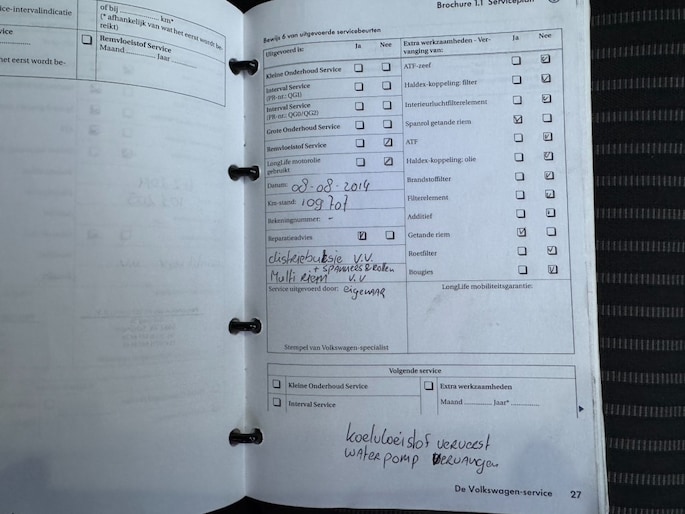 ce-intervalindicatie
het eerst wordt be-
of bij ............ km*
(* afhankelijk van wat het eerst wordt be-
reikt)
Remvloeistof Service
Maand ............ Jaar ............
Brochure 1.1 Serviceplan
Bewijs 6 van uitgevoerde servicebeurten
Uitgevoerd is: Ja Nee
Kleine Onderhoud Service
Interval Service
(PR-nr.: QG1)
Interval Service
(PR-nr.: QG0/QG2)
Grote Onderhoud Service
Remvloeistof Service
LongLife motorolie
gebruikt
Datum: 08-08-2014
Km-stand: 109707
Rekeningnummer: -
Reparatieadvies
distriebuksie V.V.
+ SPANNERS & ROLLEN
Multi Riem V.V
Service uitgevoerd door: eigenaar
Stempel van Volkswagen-specialist
Extra werkzaamheden - Ver-
vanging van: Ja Nee
ATF-zeef
Haldex-koppeling: filter
Interieurluchtfilterelement
Spanrol getande riem
ATF
Haldex-koppeling: olie
Brandstoffilter
Filterelement
Additief
Getande riem
Roetfilter
Bougies
LongLife mobiliteitsgarantie:
Volgende service
Kleine Onderhoud Service
Interval Service
Extra werkzaamheden
Maand ............ Jaar* ............
koelvloeistof ververst
WATERPOMP VERVANGEN
De Volkswagen-service 27